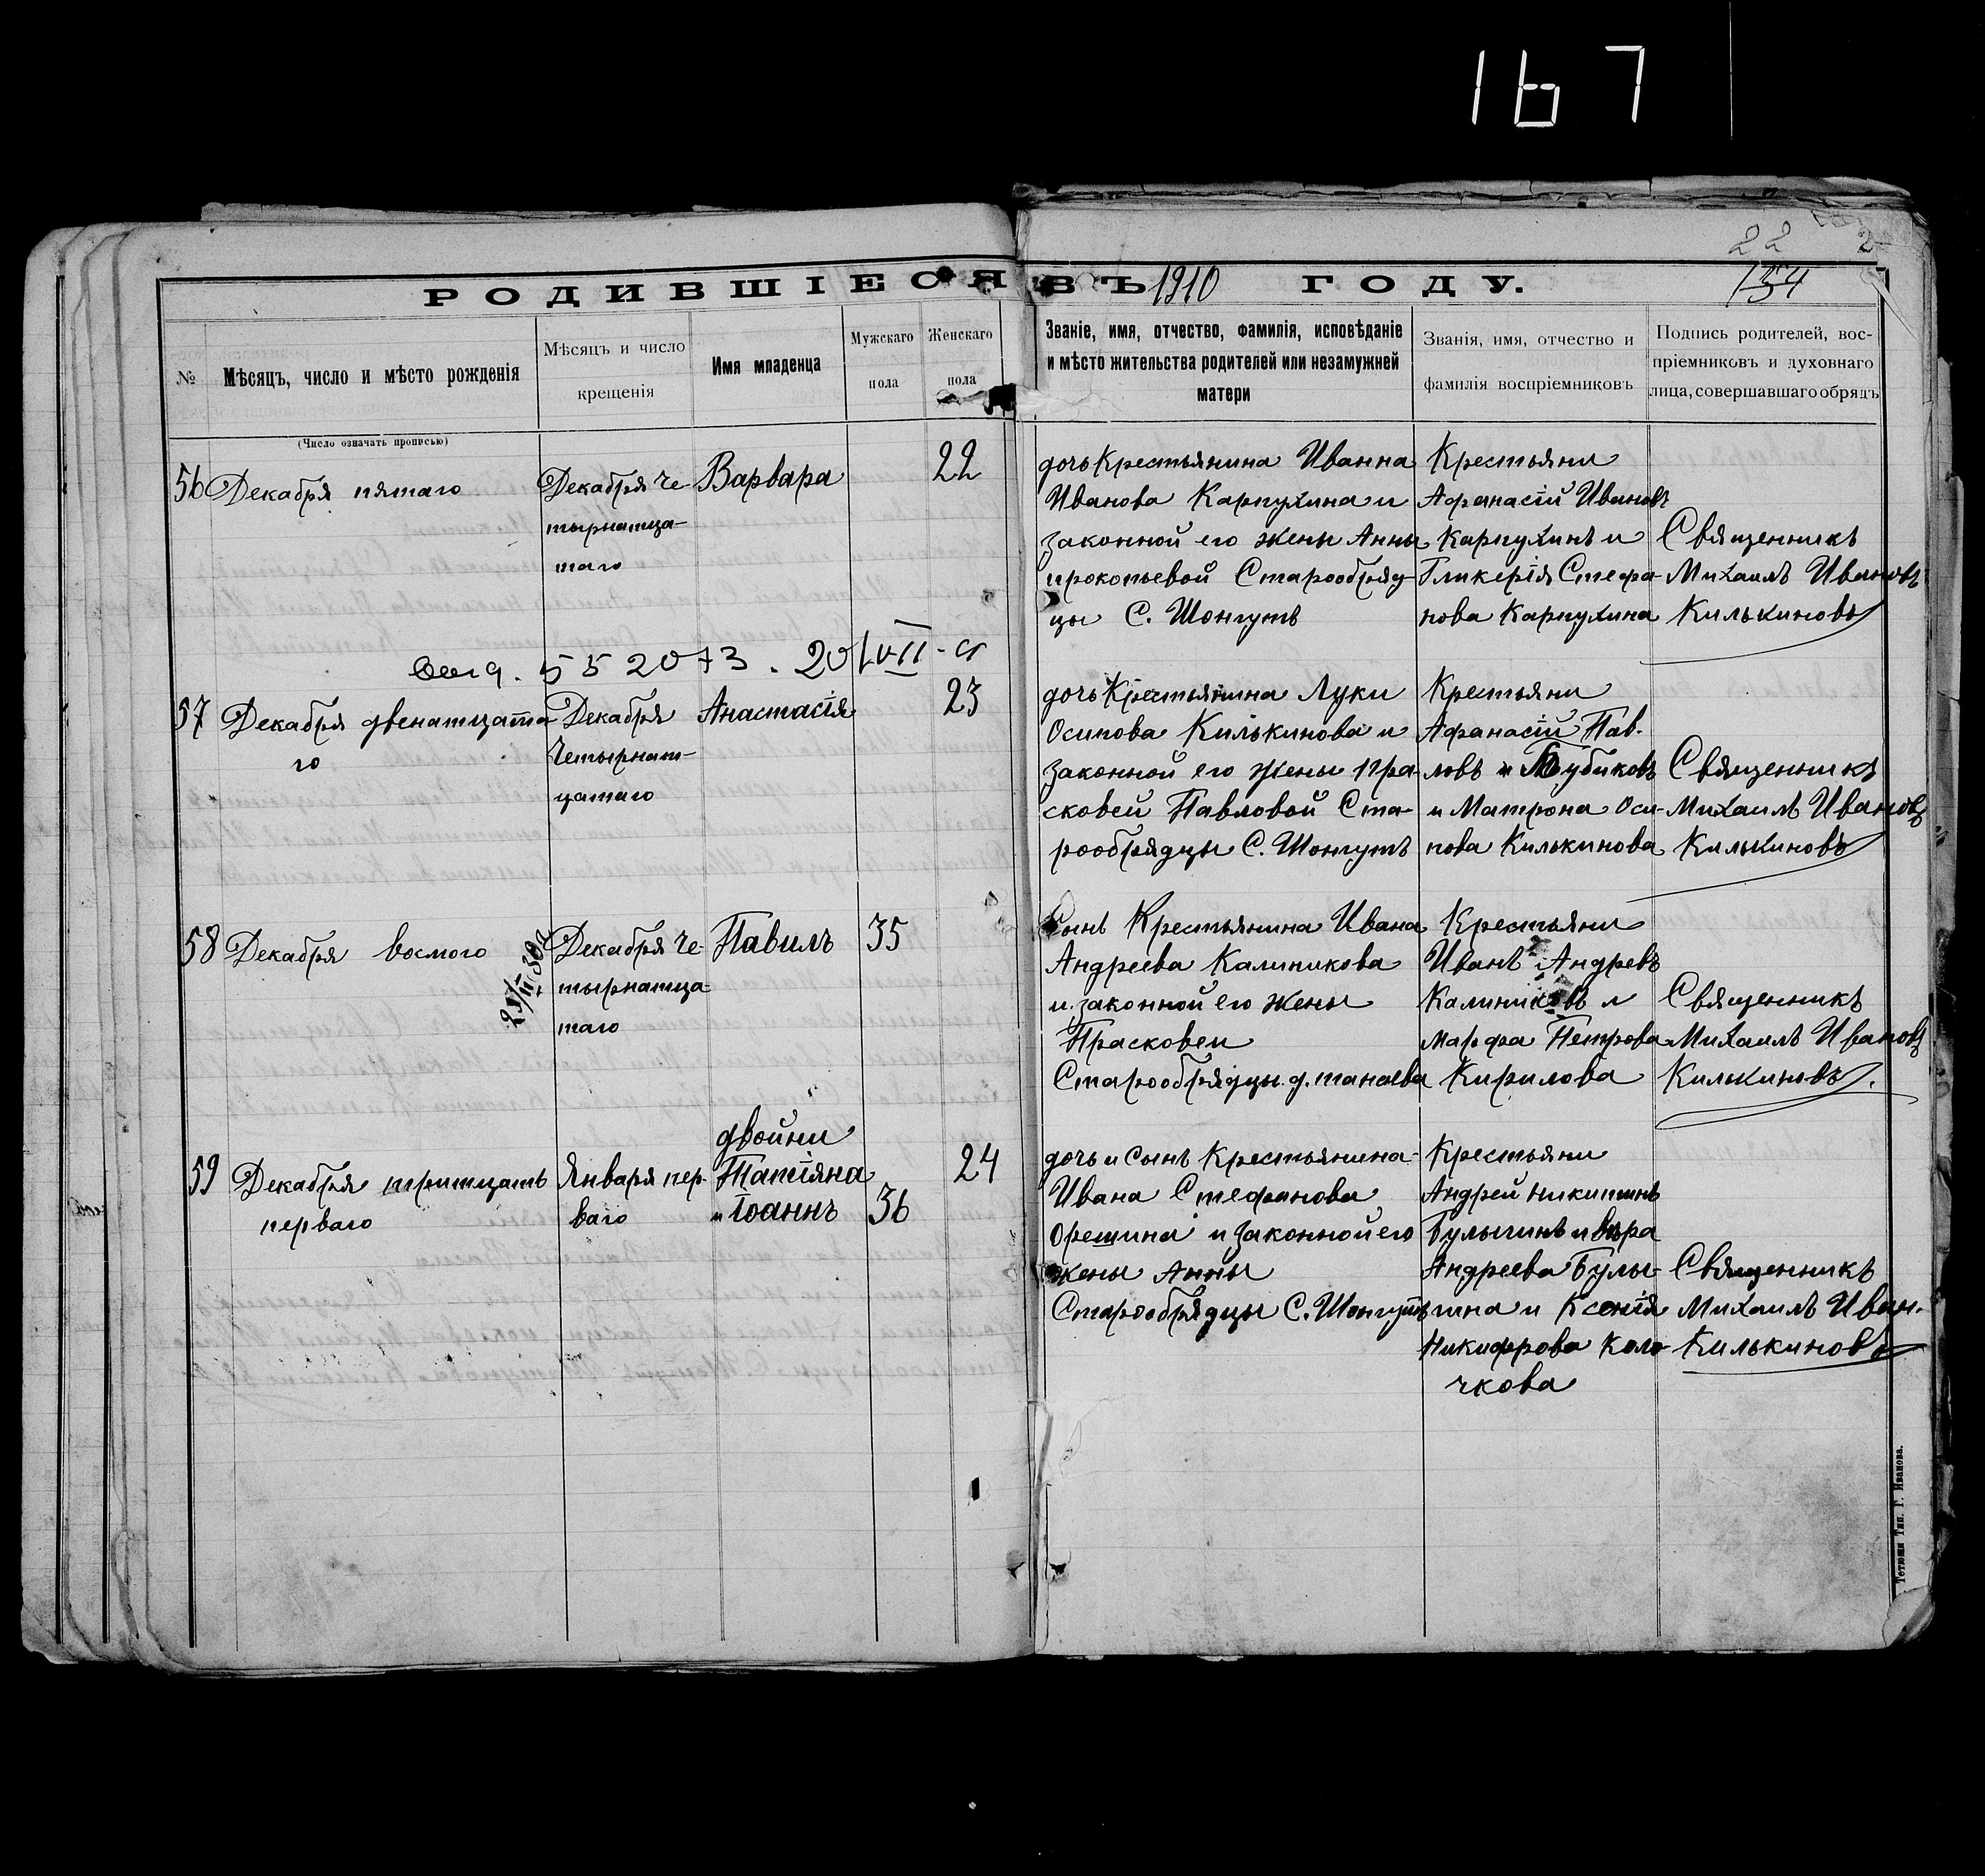 167
22
2
154
РОДИВШІЕСЯ ВЪ 1910 ГОДУ.
№
Мѣсяцъ, число и мѣсто рожденія
Мѣсяцъ и число
крещенія
Имя младенца
Мужскаго
пола
Женскаго
пола
Званіе, имя, отчество, фамилія, исповѣданіе
и мѣсто жительства родителей или незамужней
матери
Званія, имя, отчество и
фамилія воспріемниковъ
Подпись родителей, вос-
пріемниковъ и духовнаго
лица, совершавшаго обрядъ
(Число означать прописью)
56
Декабря пятаго
Декабря че-
тырнатца-
таго
Варвара
22
дочь Крестьянина Иванна
Иванова Карпухина и
законной его жены Анны
прокопьевой Старообряд-
цы С. Шонгутъ
Крестьяни
Афанасій Ивановъ
Карпухинъ и
Гликерія Стефа-
нова Карпухина
Священникъ
Михаилъ Ивановъ
Килькиновъ
552073. 20/VII-
57
Декабря двенатцата
го
Декабря
Четырнат-
цатаго
Анастасія
23
дочь Крестьянина Луки
Осипова Килькинова и
законной его жены пра-
сковеи Павловой Ста-
рообрядцы С. Шонгутъ
Крестьяни
Афанасій Пав-
ловъ
и Матрона Оси-
пова Килькинова
Священникъ
Михаилъ Ивановъ
Килькиновъ
58
Декабря восмого
Декабря че-
тырнатца-
таго
Павилъ
35
Сынъ Крестьянина Ивана
Андреева Калиникова
и законной его жены
Прасковеи
Старообрядцы д. танаева
Крестьяни
Иванъ Андревъ
Калиниковъ и
марфа Петрова
Кирилова
Священникъ
Михаилъ Ивановъ
Килькиновъ.
59
Декабря тритцать
перваго
Января пер-
ваго
двойни
Татіяна
и Іоаннъ
36
24
дочь и Сынъ Крестьянина
Ивана Стефанова
Орешина и законной его
жены Анны
Старообрядцы С. Шонгутъ
Крестьяни
Андрей Никитинъ
Булыгинъ и вѣра
Андреева Булы-
гина и Ксенія
Никифрова Коло-
чкова
Священникъ
Михаилъ Иван.
Килькиновъ
Тетюши Тип. Г. Иванова.